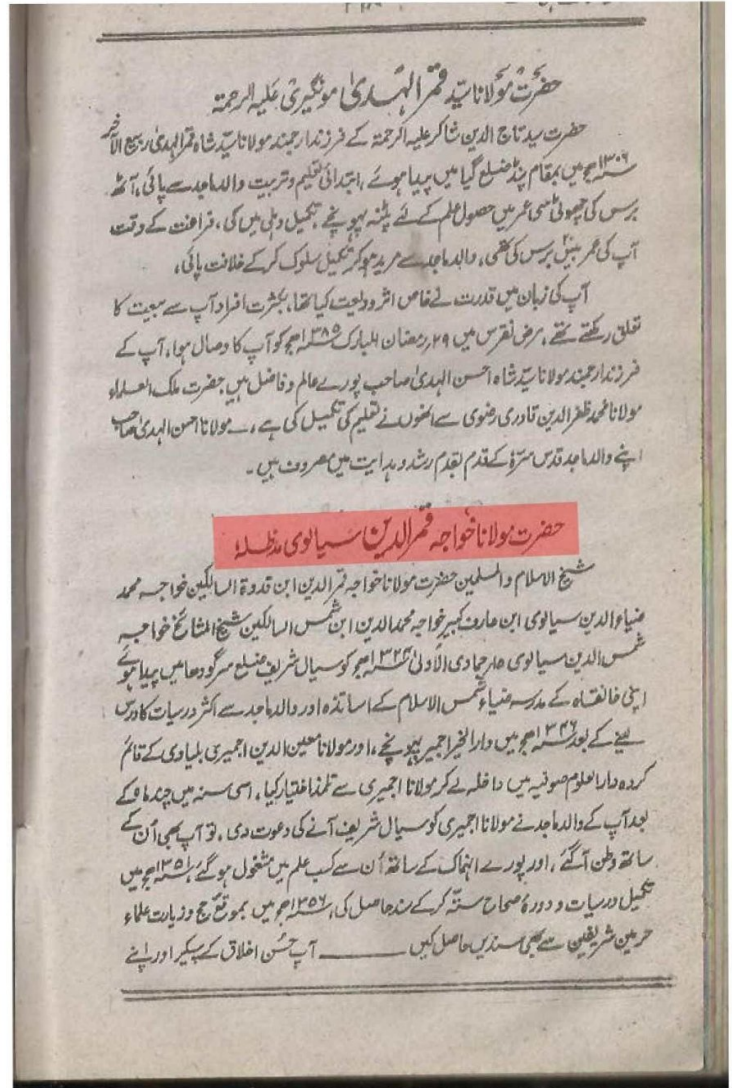 حضرت مولانا سید قمر الہدیٰ مونگیری علیہ الرحمۃ
حضرت سید تاج الدین شاکر علیہ الرحمۃ کے فرزند ارجمند مولانا سید شاہ قمر الہدیٰ ربیع الآخر
۱۳۰۶ھ میں بمقام پنڈ ضلع گیا میں پیدا ہوئے، ابتدائی تعلیم و تربیت والد ماجد سے پائی، آٹھ
برس کی چھوٹی سی عمر میں حصول علم کے لئے پٹنہ پہونچے، تکمیل دہلی میں کی، فراغت کے وقت
آپ کی عمر بیس برس کی تھی، والد ماجد سے مرید ہو کر تکمیل سلوک کر کے خلافت پائی،
آپ کی زبان میں قدرت نے خاص اثر ودیعت کیا تھا، بکثرت افراد آپ سے بیعت کا
تعلق رکھتے تھے، مرض نقرس میں ۲۹ رمضان المبارک ۱۳۸۵ھ کو آپ کا وصال ہوا، آپ کے
فرزند ارجمند مولانا سید شاہ احسن الہدیٰ صاحب پورے عالم و فاضل ہیں حضرت ملک العلماء
مولانا محمد ظفر الدین قادری رضوی سے انھوں نے تعلیم کی تکمیل کی ہے، ــ مولانا احسن الہدیٰ صاحب
اپنے والد ماجد قدس سرہٗ کے قدم بقدم رشد و ہدایت میں مصروف ہیں۔
حضرت مولانا خواجہ قمر الدین سیالوی مدظلہٗ
شیخ الاسلام والمسلمین حضرت مولانا خواجہ قمر الدین ابن قدوۃ السالکین خواجہ محمد
ضیاء الدین سیالوی ابن عارف کبیر خواجہ محمد الدین ابن شمس السالکین شیخ المشائخ خواجہ
شمس الدین سیالوی جمادی الاولیٰ ۱۳۲۴ھ کو سیال شریف ضلع سرگودھا میں پیدا ہوئے
اپنی خانقاہ کے مدرسہ ضیاء شمس الاسلام کے اساتذہ اور والد ماجد سے اکثر درسیات کا درس
لینے کے بعد ۱۳۴۶ھ میں دار الخیر اجمیر پہونچے، اور مولانا معین الدین اجمیری بلیاوی کے قائم
کردہ دار العلوم صوفیہ میں داخلہ لے کر مولانا اجمیری سے تلمذ اختیار کیا، اسی سنہ میں چند ماہ کے
بعد آپ کے والد ماجد نے مولانا اجمیری کو سیال شریف آنے کی دعوت دی، تو آپ بھی اُن کے
ساتھ وطن آ گئے، اور پورے انہماک کے ساتھ اُن سے کسب علم میں مشغول ہو گئے، ۱۳۵۱ھ میں
تکمیل درسیات و دورۂ صحاح ستہ کر کے سند حاصل کی، ۱۳۵۶ھ میں بموقع حج و زیارت علماء
حرمین شریفین سے بھی سندیں حاصل کیں ـــــــــ آپ حسن اخلاق کے پیکر اور اپنے